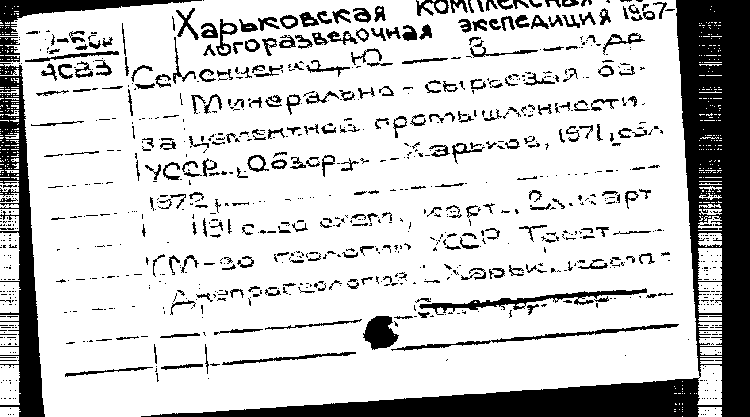 Харьковская комплексная
2-50м логоразведочная экспедиция 1967-
4С83 Семенченко, Ю В и др
Минерально-сырьевая ба-
за цементной промышленности
УССР. (Обзор). Харьков, 1971, обл
1972.
191 с. со схем., карт., 2 л. карт
(М-во геологии УССР. Трест
Днепрогеология. Харьк. комп-